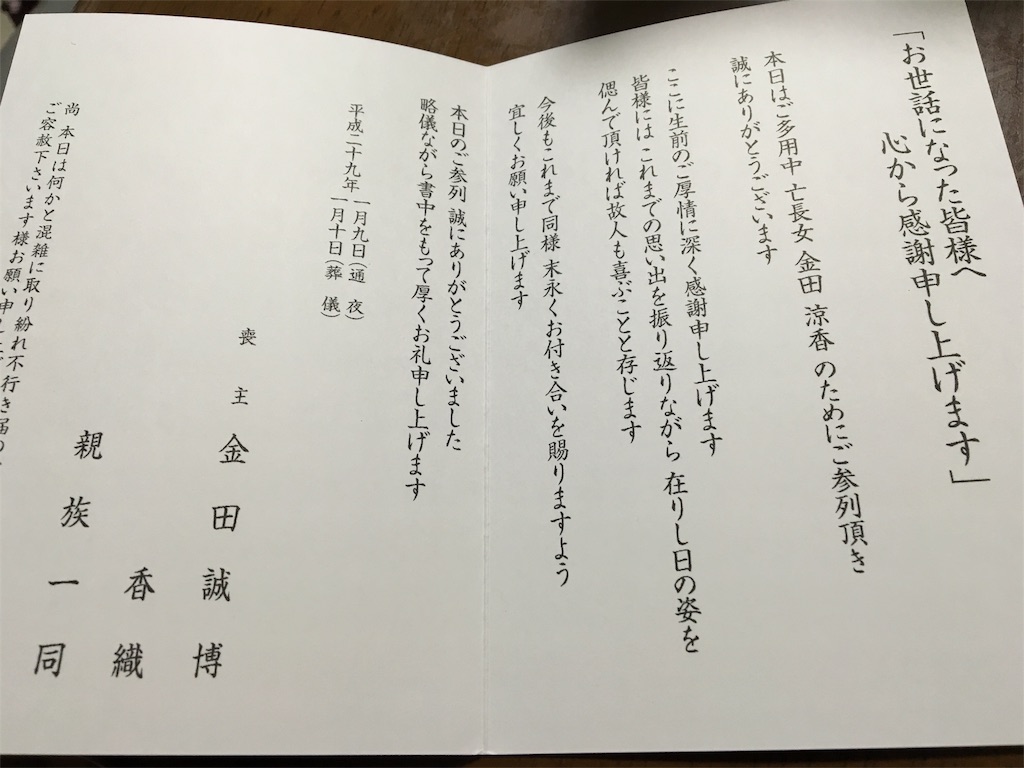 「お世話になった皆様へ
心から感謝申し上げます」
本日はご多用中 亡長女 金田 涼香 のためにご参列頂き
誠にありがとうございます
ここに生前のご厚情に深く感謝申し上げます
皆様には これまでの思い出を振り返りながら 在りし日の姿を
偲んで頂ければ故人も喜ぶことと存じます
今後もこれまで同様 末永くお付き合いを賜りますよう
宜しくお願い申し上げます
本日のご参列 誠にありがとうございました
略儀ながら書中をもって厚くお礼申し上げます
平成二十九年 一月九日(通 夜)
一月十日(葬 儀)
喪 主 金 田 誠 博
香 織
親 族 一 同
尚 本日は何かと混雑に取り紛れ不行き届の
ご容赦下さいます様お願い申し上げ